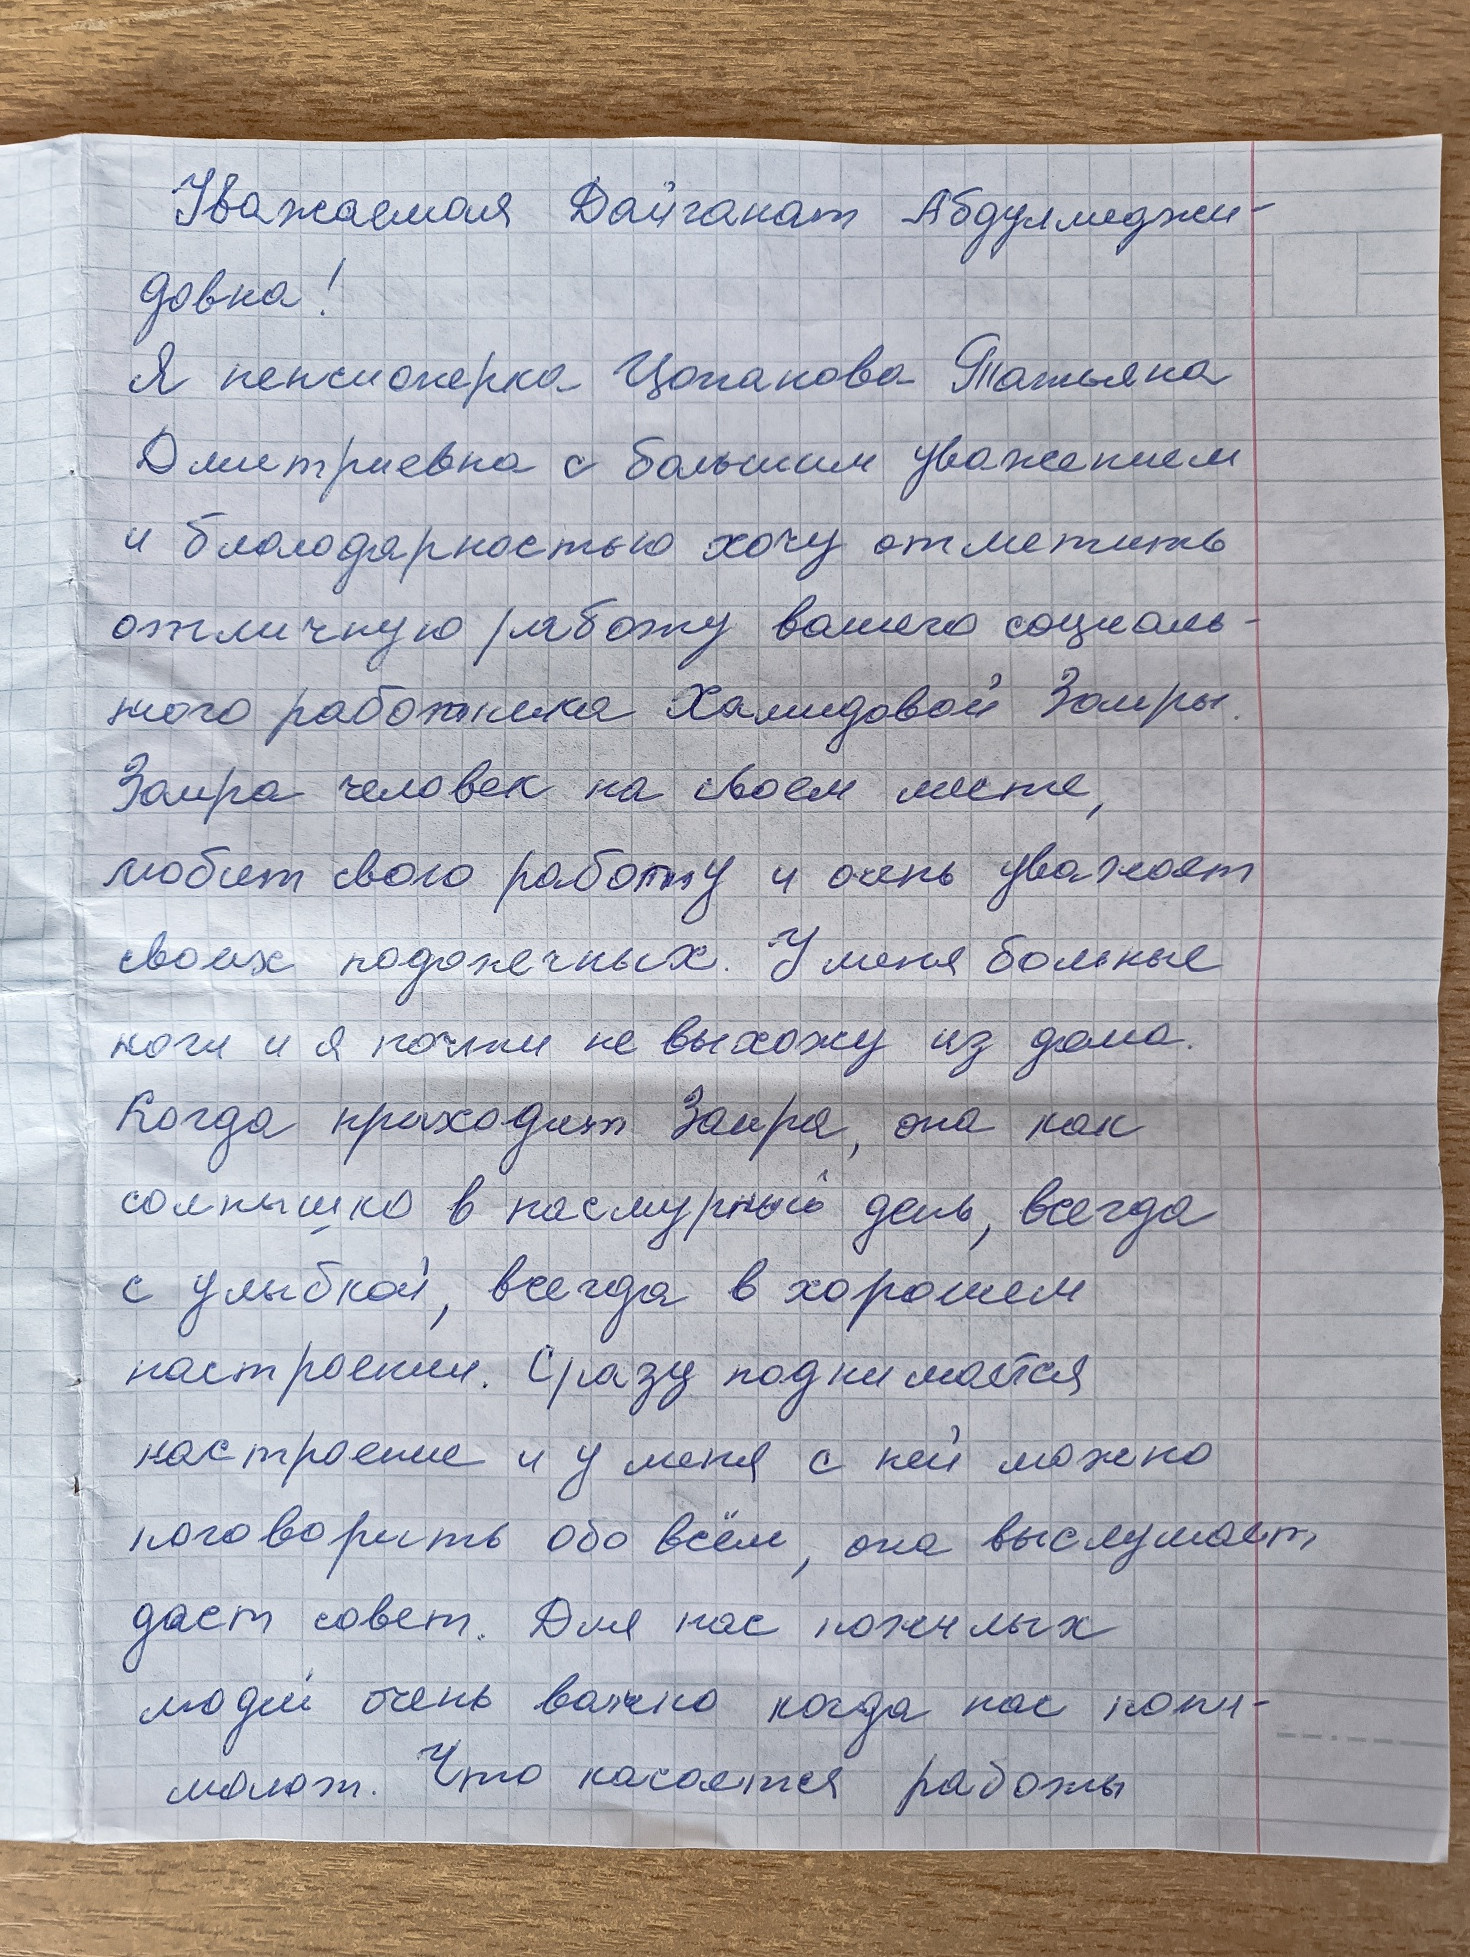 Уважаемая Дайганат Абдулмеджи-
довна!
Я пенсионерка Цопанова Татьяна
Дмитриевна с большим уважением
и благодарностью хочу отметить
отличную работу вашего социаль-
ного работника Хамидовой Заиры.
Заира человек на своем месте,
любит свою работу и очень уважает
своих подопечных. У меня больные
ноги и я почти не выхожу из дома.
Когда приходит Заира, она как
солнышко в пасмурный день, всегда
с улыбкой, всегда в хорошем
настроении. Сразу поднимается
настроение и у меня с ней можно
поговорить обо всём, она выслушает
даст совет. Для нас пожилых
людей очень важно когда нас пони-
мают. Что касается работы